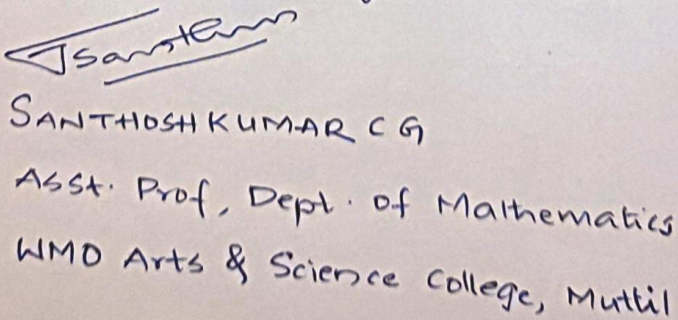 SANTHOSH KUMAR C G
Asst. Prof, Dept. of Mathematics
WMO Arts & Science College, Muttil